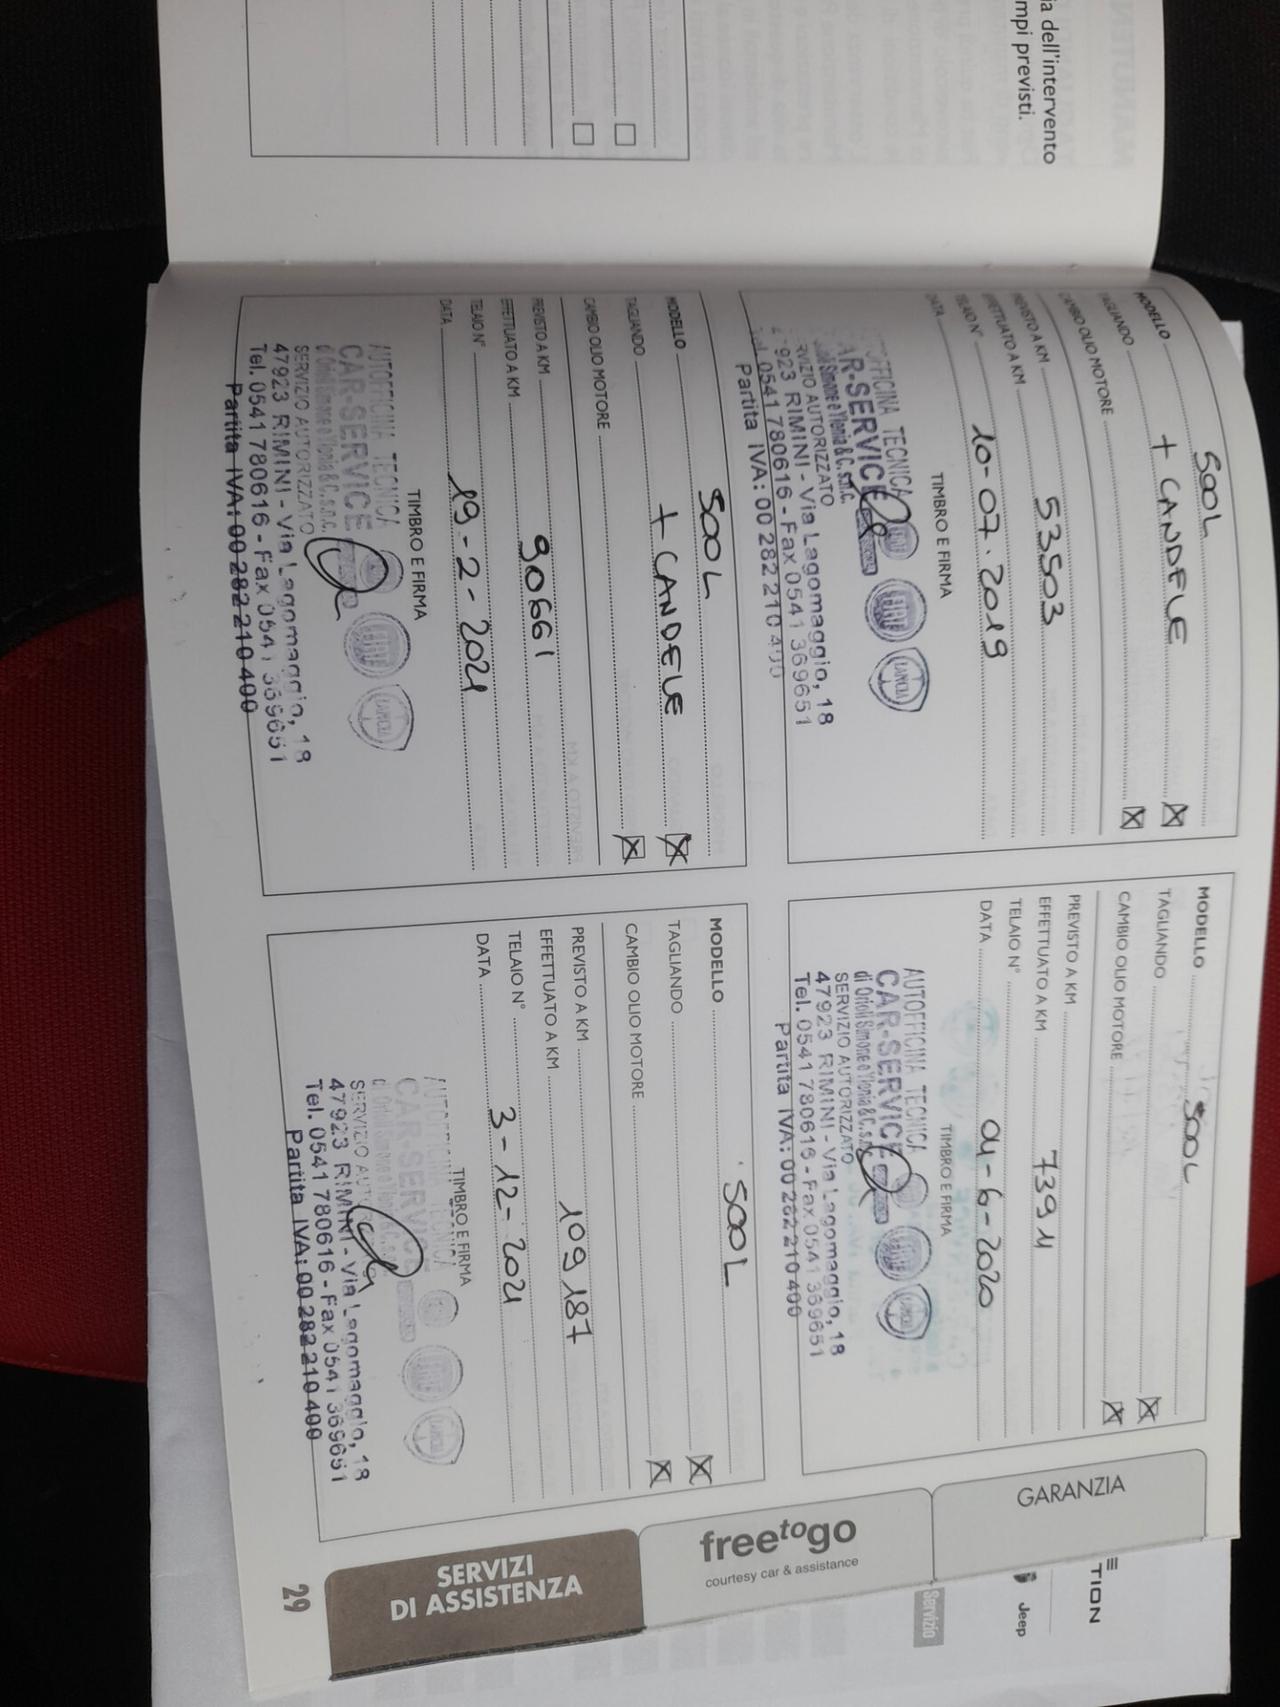 ia dell'intervento
mpi previsti.
MODELLO 500L
TAGLIANDO + CANDELE
CAMBIO OLIO MOTORE
PREVISTO A KM
EFFETTUATO A KM 53503
TELAIO N°
DATA 10-07.2019
TIMBRO E FIRMA
AUTOFFICINA TECNICA
CAR-SERVICE
SERVIZIO AUTORIZZATO
47923 RIMINI - Via Lagomaggio, 18
Tel. 0541 780616 - Fax 0541 369651
Partita IVA: 00 282 210 400
LANCIA
MODELLO 500L
TAGLIANDO
CAMBIO OLIO MOTORE
PREVISTO A KM
EFFETTUATO A KM 73911
TELAIO N°
DATA 04-6-2020
TIMBRO E FIRMA
AUTOFFICINA TECNICA
CAR-SERVICE
di Orioli Simone e Ylenia & C. s.n.c.
SERVIZIO AUTORIZZATO
47923 RIMINI - Via Lagomaggio, 18
Tel. 0541 780616 - Fax 0541 369651
Partita IVA: 00 282 210 400
LANCIA
MODELLO 500L
TAGLIANDO + CANDELE
CAMBIO OLIO MOTORE
PREVISTO A KM
EFFETTUATO A KM 90661
TELAIO N°
DATA 19-2-2021
TIMBRO E FIRMA
AUTOFFICINA TECNICA
CAR-SERVICE
di Orioli Simone e Ylenia & C. s.n.c.
SERVIZIO AUTORIZZATO
47923 RIMINI - Via Lagomaggio, 18
Tel. 0541 780616 - Fax 0541 369651
Partita IVA: 00 282 210 400
LANCIA
MODELLO 500L
TAGLIANDO
CAMBIO OLIO MOTORE
PREVISTO A KM
EFFETTUATO A KM 109187
TELAIO N°
DATA 3-12-2021
TIMBRO E FIRMA
AUTOFFICINA TECNICA
CAR-SERVICE
47923 RIMINI - Via Lagomaggio, 18
Tel. 0541 780616 - Fax 0541 369651
Partita IVA: 00 282 210 400
GARANZIA
freetogo
courtesy car & assistance
SERVIZI
DI ASSISTENZA
29
TION
Jeep
Servizio